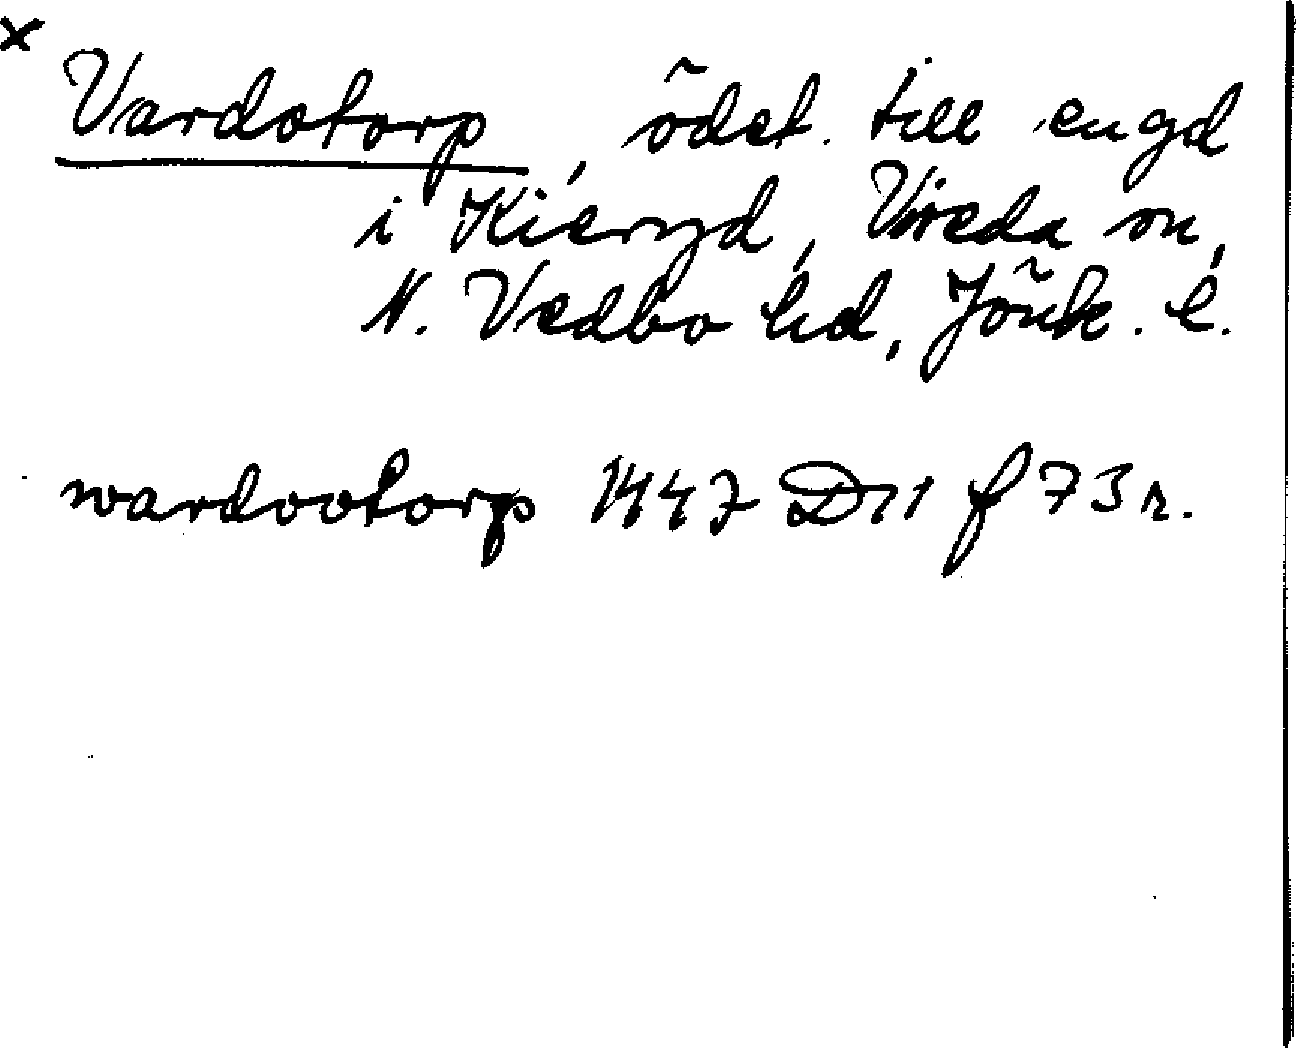 x
Vardotorp, ödet. till engd
i Kieryd, Vireda sn,
N. Vedbo hd, Jönk. l.
wardootorp 1447 D11 f 73 r.